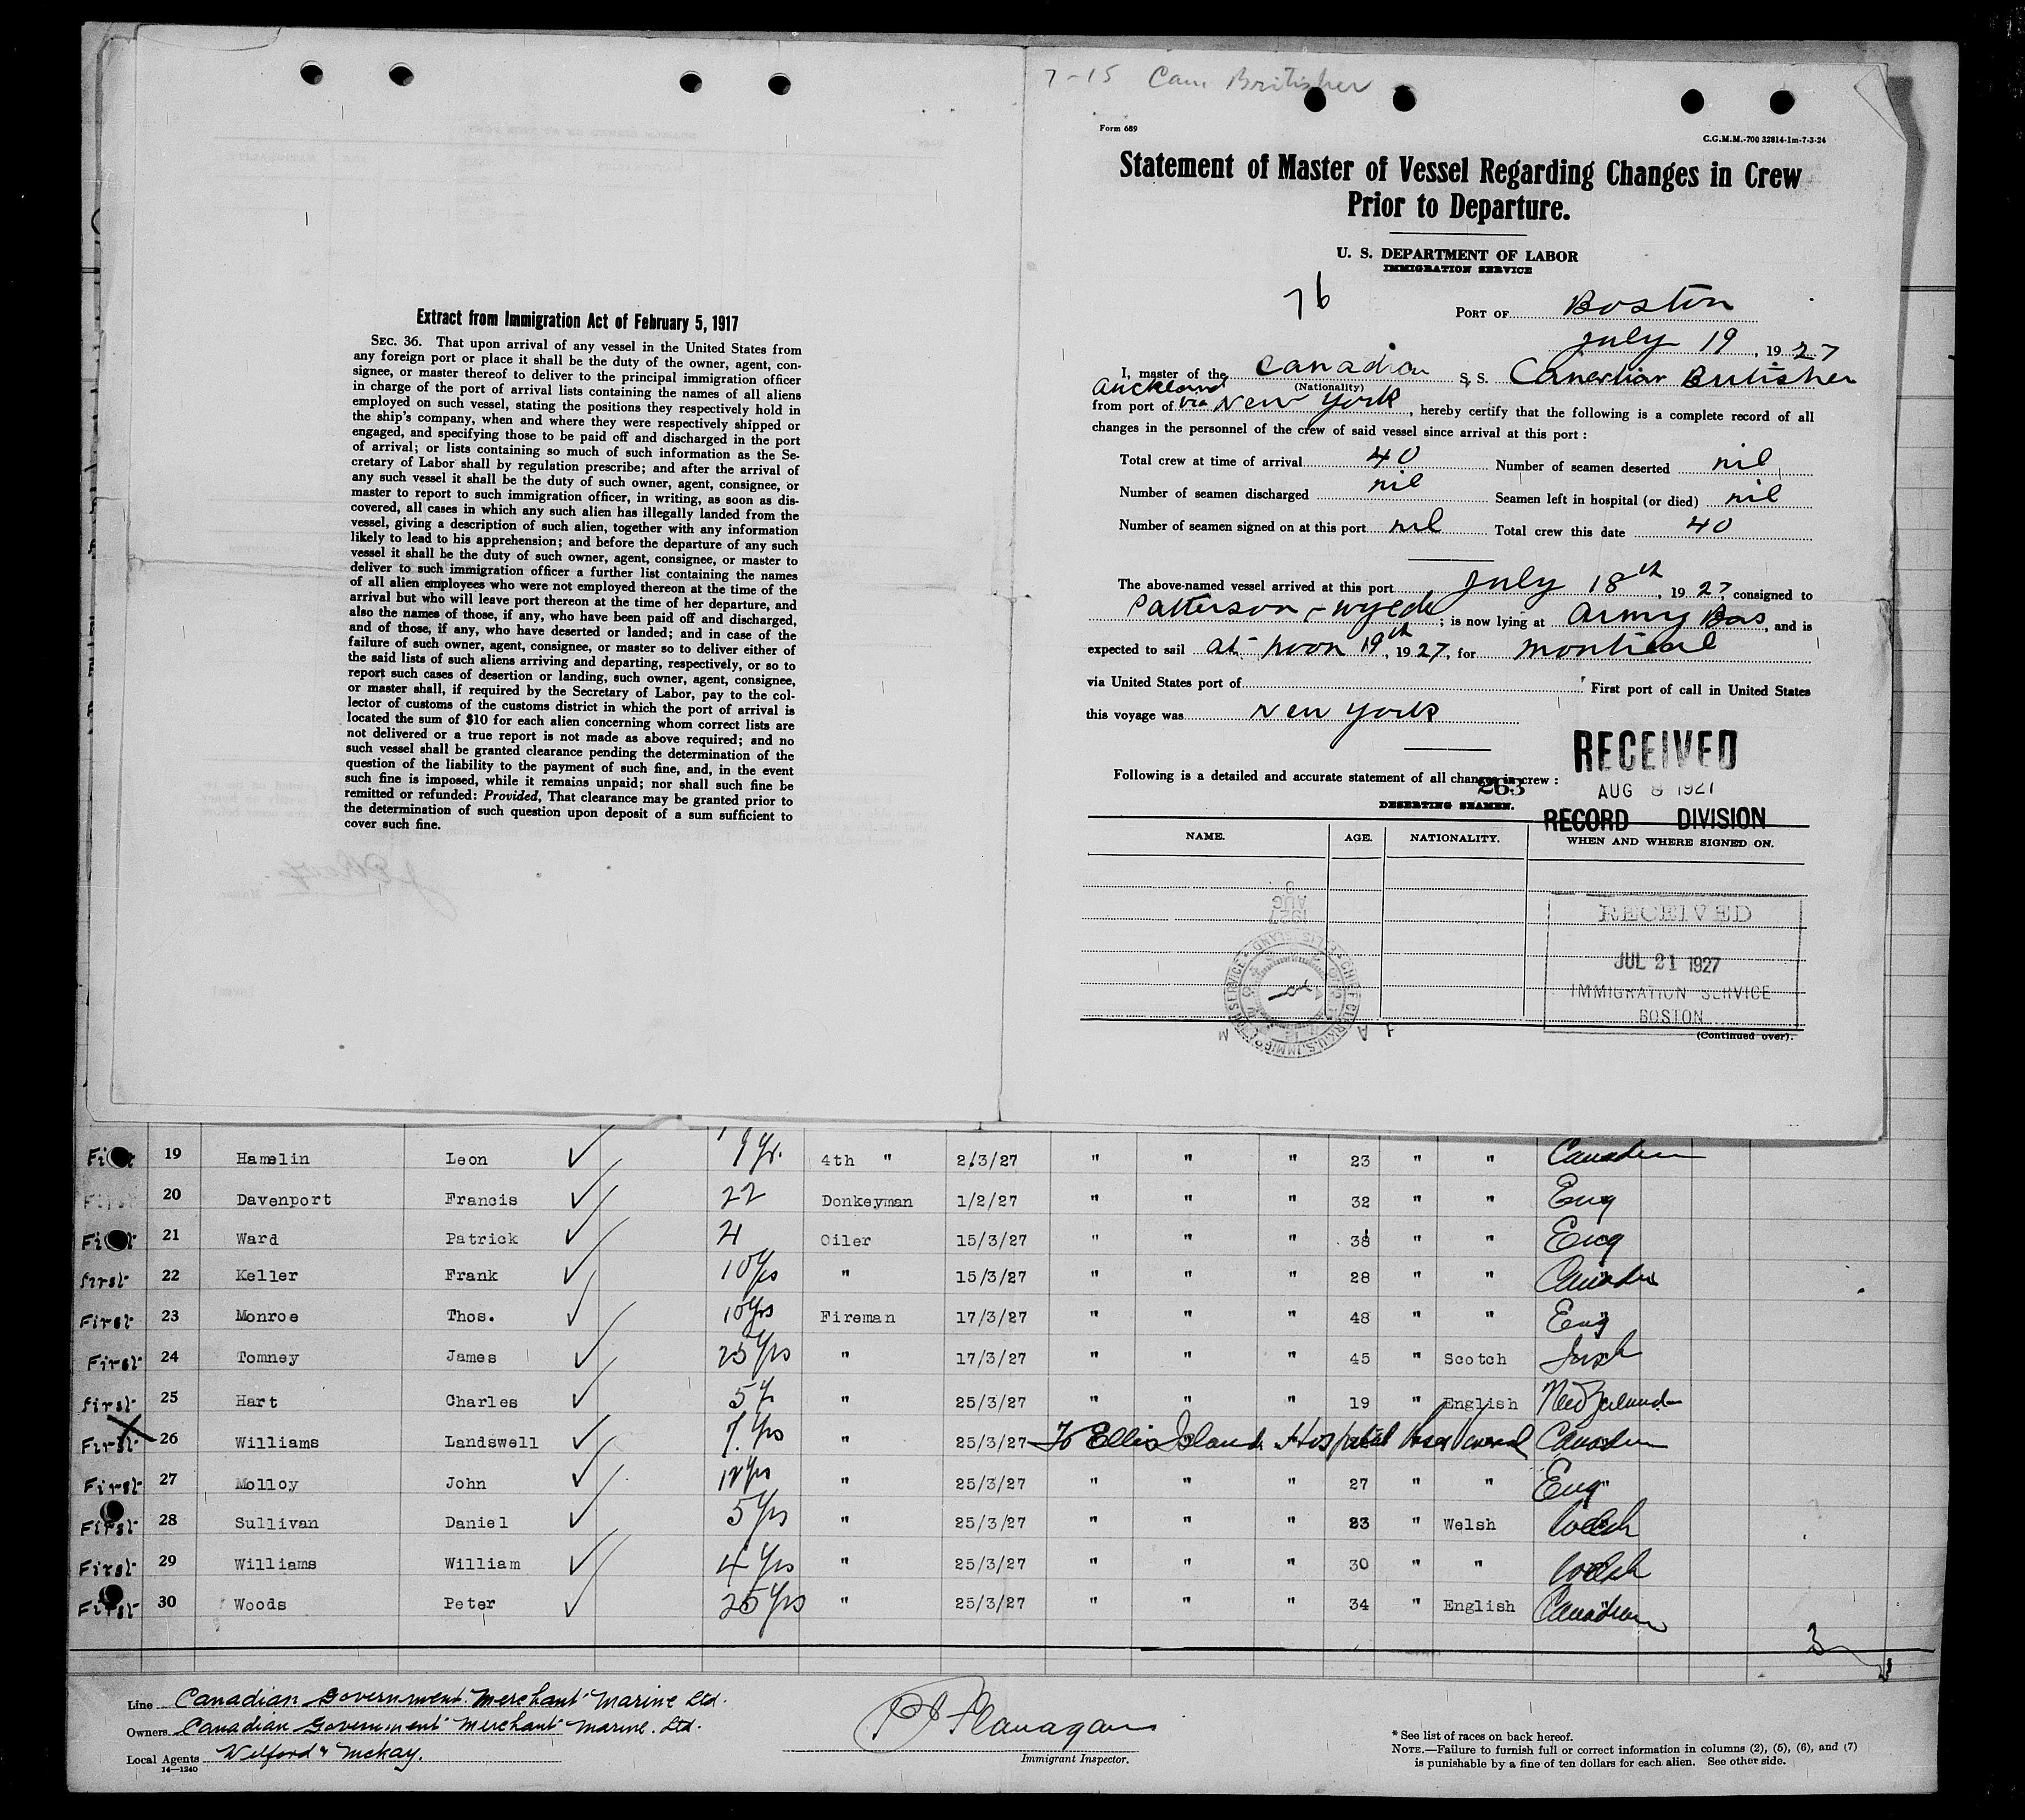 Extract from Immigration Act of February 5, 1917
SEC. 36. That upon arrival of any vessel in the United States from
any foreign port or place it shall be the duty of the owner, agent, con-
signee, or master thereof to deliver to the principal immigration officer
in charge of the port of arrival lists containing the names of all aliens
employed on such vessel, stating the positions they respectively hold in
the ship's company, when and where they were respectively shipped or
engaged, and specifying those to be paid off and discharged in the port
of arrival; or lists containing so much of such information as the Se-
cretary of Labor shall by regulation prescribe; and after the arrival of
any such vessel it shall be the duty of such owner, agent, consignee, or
master to report to such immigration officer, in writing, as soon as dis-
covered, all cases in which any such alien has illegally landed from the
vessel, giving a description of such alien, together with any information
likely to lead to his apprehension; and before the departure of any such
vessel it shall be the duty of such owner, agent, consignee, or master to
deliver to such immigration officer a further list containing the names
of all alien employees who were not employed thereon at the time of the
arrival but who will leave port thereon at the time of her departure, and
also the names of those, if any, who have been paid off and discharged,
and of those, if any, who have deserted or landed; and in case of the
failure of such owner, agent, consignee, or master so to deliver either of
the said lists of such aliens arriving and departing, respectively, or so to
report such cases of desertion or landing, such owner, agent, consignee,
or master shall, if required by the Secretary of Labor, pay to the col-
lector of customs of the customs district in which the port of arrival is
located the sum of $10 for each alien concerning whom correct lists are
not delivered or a true report is not made as above required; and no
such vessel shall be granted clearance pending the determination of the
question of the liability to the payment of such fine, and, in the event
such fine is imposed, while it remains unpaid; nor shall such fine be
remitted or refunded: Provided, That clearance may be granted prior to
the determination of such question upon deposit of a sum sufficient to
cover such fine.
7-15 Can Britisher
Form 689
C.G.M.M.-700 32814-1m-7-3-24
Statement of Master of Vessel Regarding Changes in Crew
Prior to Departure.
U. S. DEPARTMENT OF LABOR
IMMIGRATION SERVICE
76
PORT OF Boston
July 19, 1927
I, master of the Canadian S. S. Canadian Britisher
(Nationality)
Auckland
from port of via New York, hereby certify that the following is a complete record of all
changes in the personnel of the crew of said vessel since arrival at this port:
Total crew at time of arrival 40 Number of seamen deserted nil
Number of seamen discharged nil Seamen left in hospital (or died) nil
Number of seamen signed on at this port nil Total crew this date 40
The above-named vessel arrived at this port July 18th, 1927, consigned to
Patterson - Wyede; is now lying at Army Bas, and is
expected to sail at noon 19th, 1927, for Montreal
via United States port of First port of call in United States
this voyage was New York
Following is a detailed and accurate statement of all changes in crew:
263
DESERTING SEAMEN.
RECEIVED
AUG 8 1927
RECORD DIVISION
NAME. AGE. NATIONALITY. WHEN AND WHERE SIGNED ON.
AUG 1927
RECEIVED
JUL 21 1927
IMMIGRATION SERVICE
BOSTON
(Continued over).
First 19 Hamelin Leon 1 yr. 4th " 2/3/27 " " " 23 " " Canadian
First 20 Davenport Francis 22 Donkeyman 1/2/27 " " " 32 " " Eng
First 21 Ward Patrick 21 Oiler 15/3/27 " " " 38 " " Eng
First 22 Keller Frank 10 yrs " 15/3/27 " " " 28 " " Canadian
First 23 Monroe Thos. 10 yrs Fireman 17/3/27 " " " 48 " " Eng
First 24 Tomney James 25 yrs " 17/3/27 " " " 45 " Scotch Irish
First 25 Hart Charles 5 y " 25/3/27 " " " 19 " English New Zealand
First X 26 Williams Landswell 7 yrs " 25/3/27 To Ellis Island Hospital Canadian
First 27 Molloy John 12 yrs " 25/3/27 " " " 27 " " Eng
First 28 Sullivan Daniel 5 yrs " 25/3/27 " " " 23 " Welsh Welsh
First 29 Williams William 4 yrs " 25/3/27 " " " 30 " " Welsh
First 30 Woods Peter 25 yrs " 25/3/27 " " " 34 " English Canadian
Line Canadian Government Merchant Marine Ltd.
Owners Canadian Government Merchant Marine. Ltd.
Local Agents Wilford & McKay.
14—1240
P J Flanagan
Immigrant Inspector.
* See list of races on back hereof.
NOTE.—Failure to furnish full or correct information in columns (2), (5), (6), and (7)
is punishable by a fine of ten dollars for each alien. See other side.